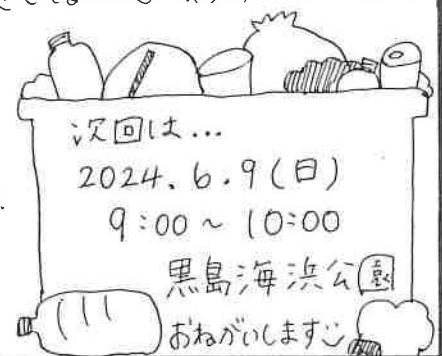 次回は...
2024.6.9(日)
9:00~10:00
黒島海浜公園
おねがいします